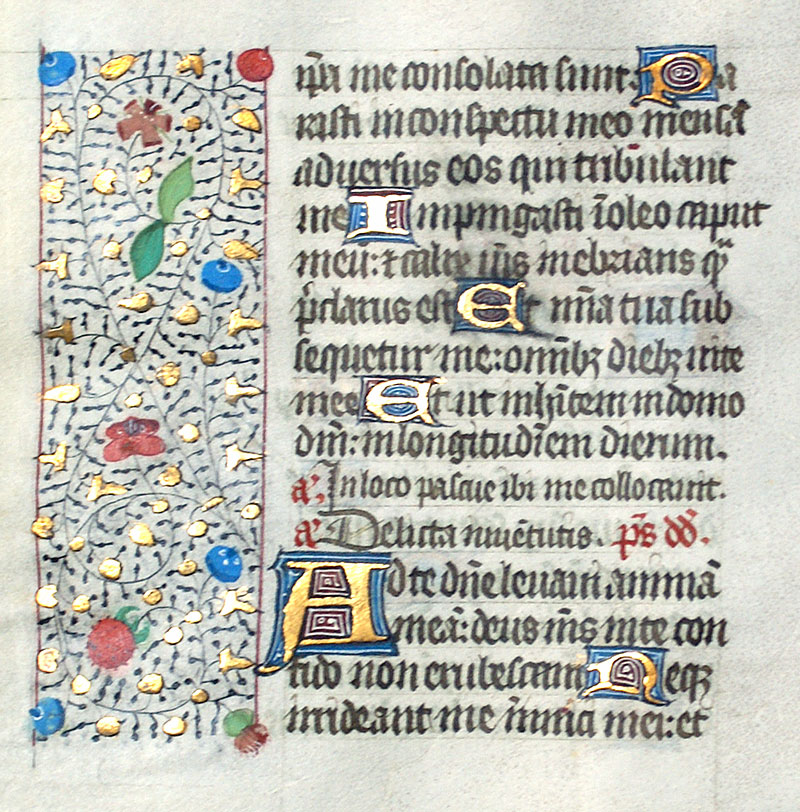 ip̄a me consolata sunt. Pa
rasti in conspectu meo mensā
adversus eos qui tribulant
me Impingasti ī oleo caput
meū: et calix m̄s inebrians qͣ
p̄clarus est Et mīa tua sub
sequetur me: omībꝫ diebꝫ vite
mee Et ut inhītem in domo
dn̄i: in longitudīem dierum.
a. In loco pascue ibi me collocavit.
a Delicta iuvētutis. ps̄ dd̄.
Ad te dn̄e levavi animā
meā: deus m̄s in te con
fido non erubescam Neqꝫ
irrideant me inīmici mei: et